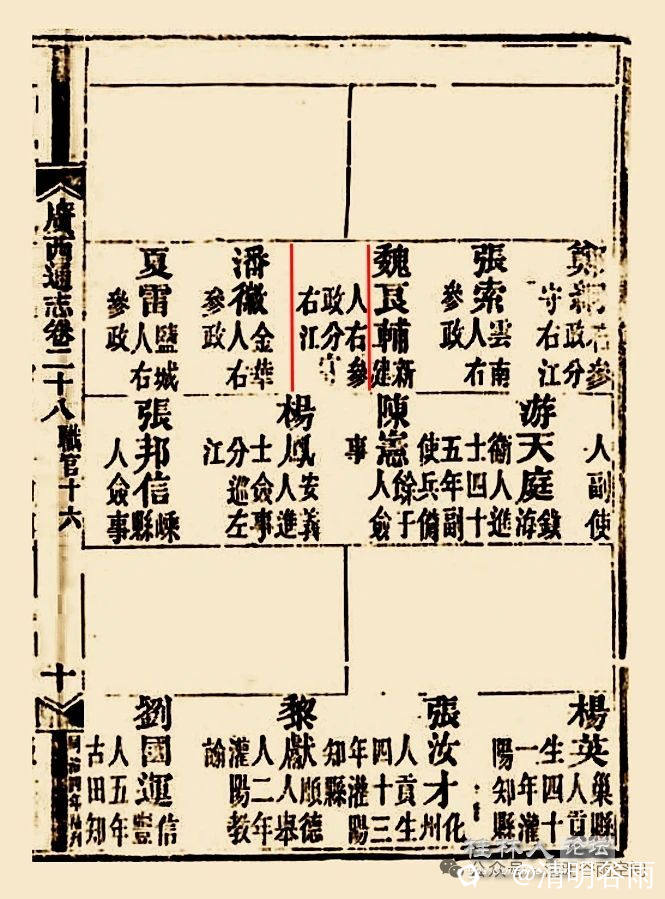 鄭絅右參
政分
守右江
張索雲南
人右
參政
魏良輔新建
人右參
政分守
右江
潘徽金華
人右
參政
夏雷鹽城
人右
參政
人副使
游天庭鎮海
衛人進
士四十
五年副
使兵備
陳憲餘干
人僉
事
楊鳳安義
人進
士僉事
分巡左
江
張邦信嵊縣
人僉事
楊英巢縣
人貢
生四十
一年灌
陽知縣
張汝才化州
人貢生
四十三
年灌陽
知縣
黎獻順德
人舉
人二年
灌陽教
諭
劉國運信豐
人五年
古田知
廣西通志卷二十八 職官十六
十
桂林人论坛
公众号
@清明谷雨